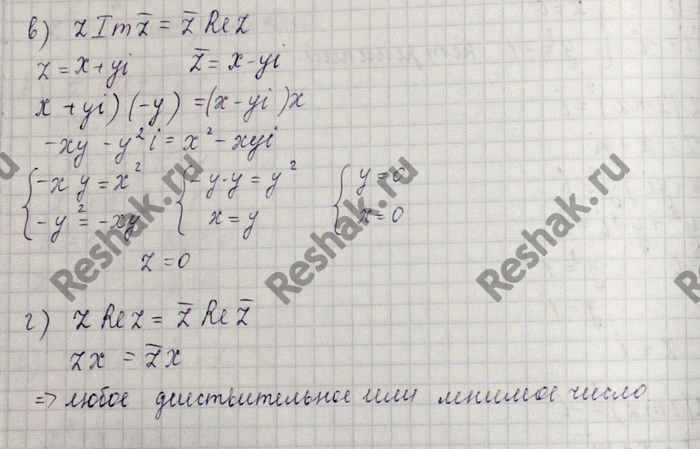 в) z Im z̅ = z̅ Re z
z = x + yi z̅ = x - yi
x + yi)(-y) = (x - yi)x
-xy - y²i = x² - xyi
{ -xy = x² { -y·y = y² { y = 0
{ -y² = -xy { x = y { x = 0
z = 0
г) z Re z = z̅ Re z̅
zx = z̅x
=> любое действительное или мнимое число.
Reshak.ru
Reshak.ru
Reshak.ru